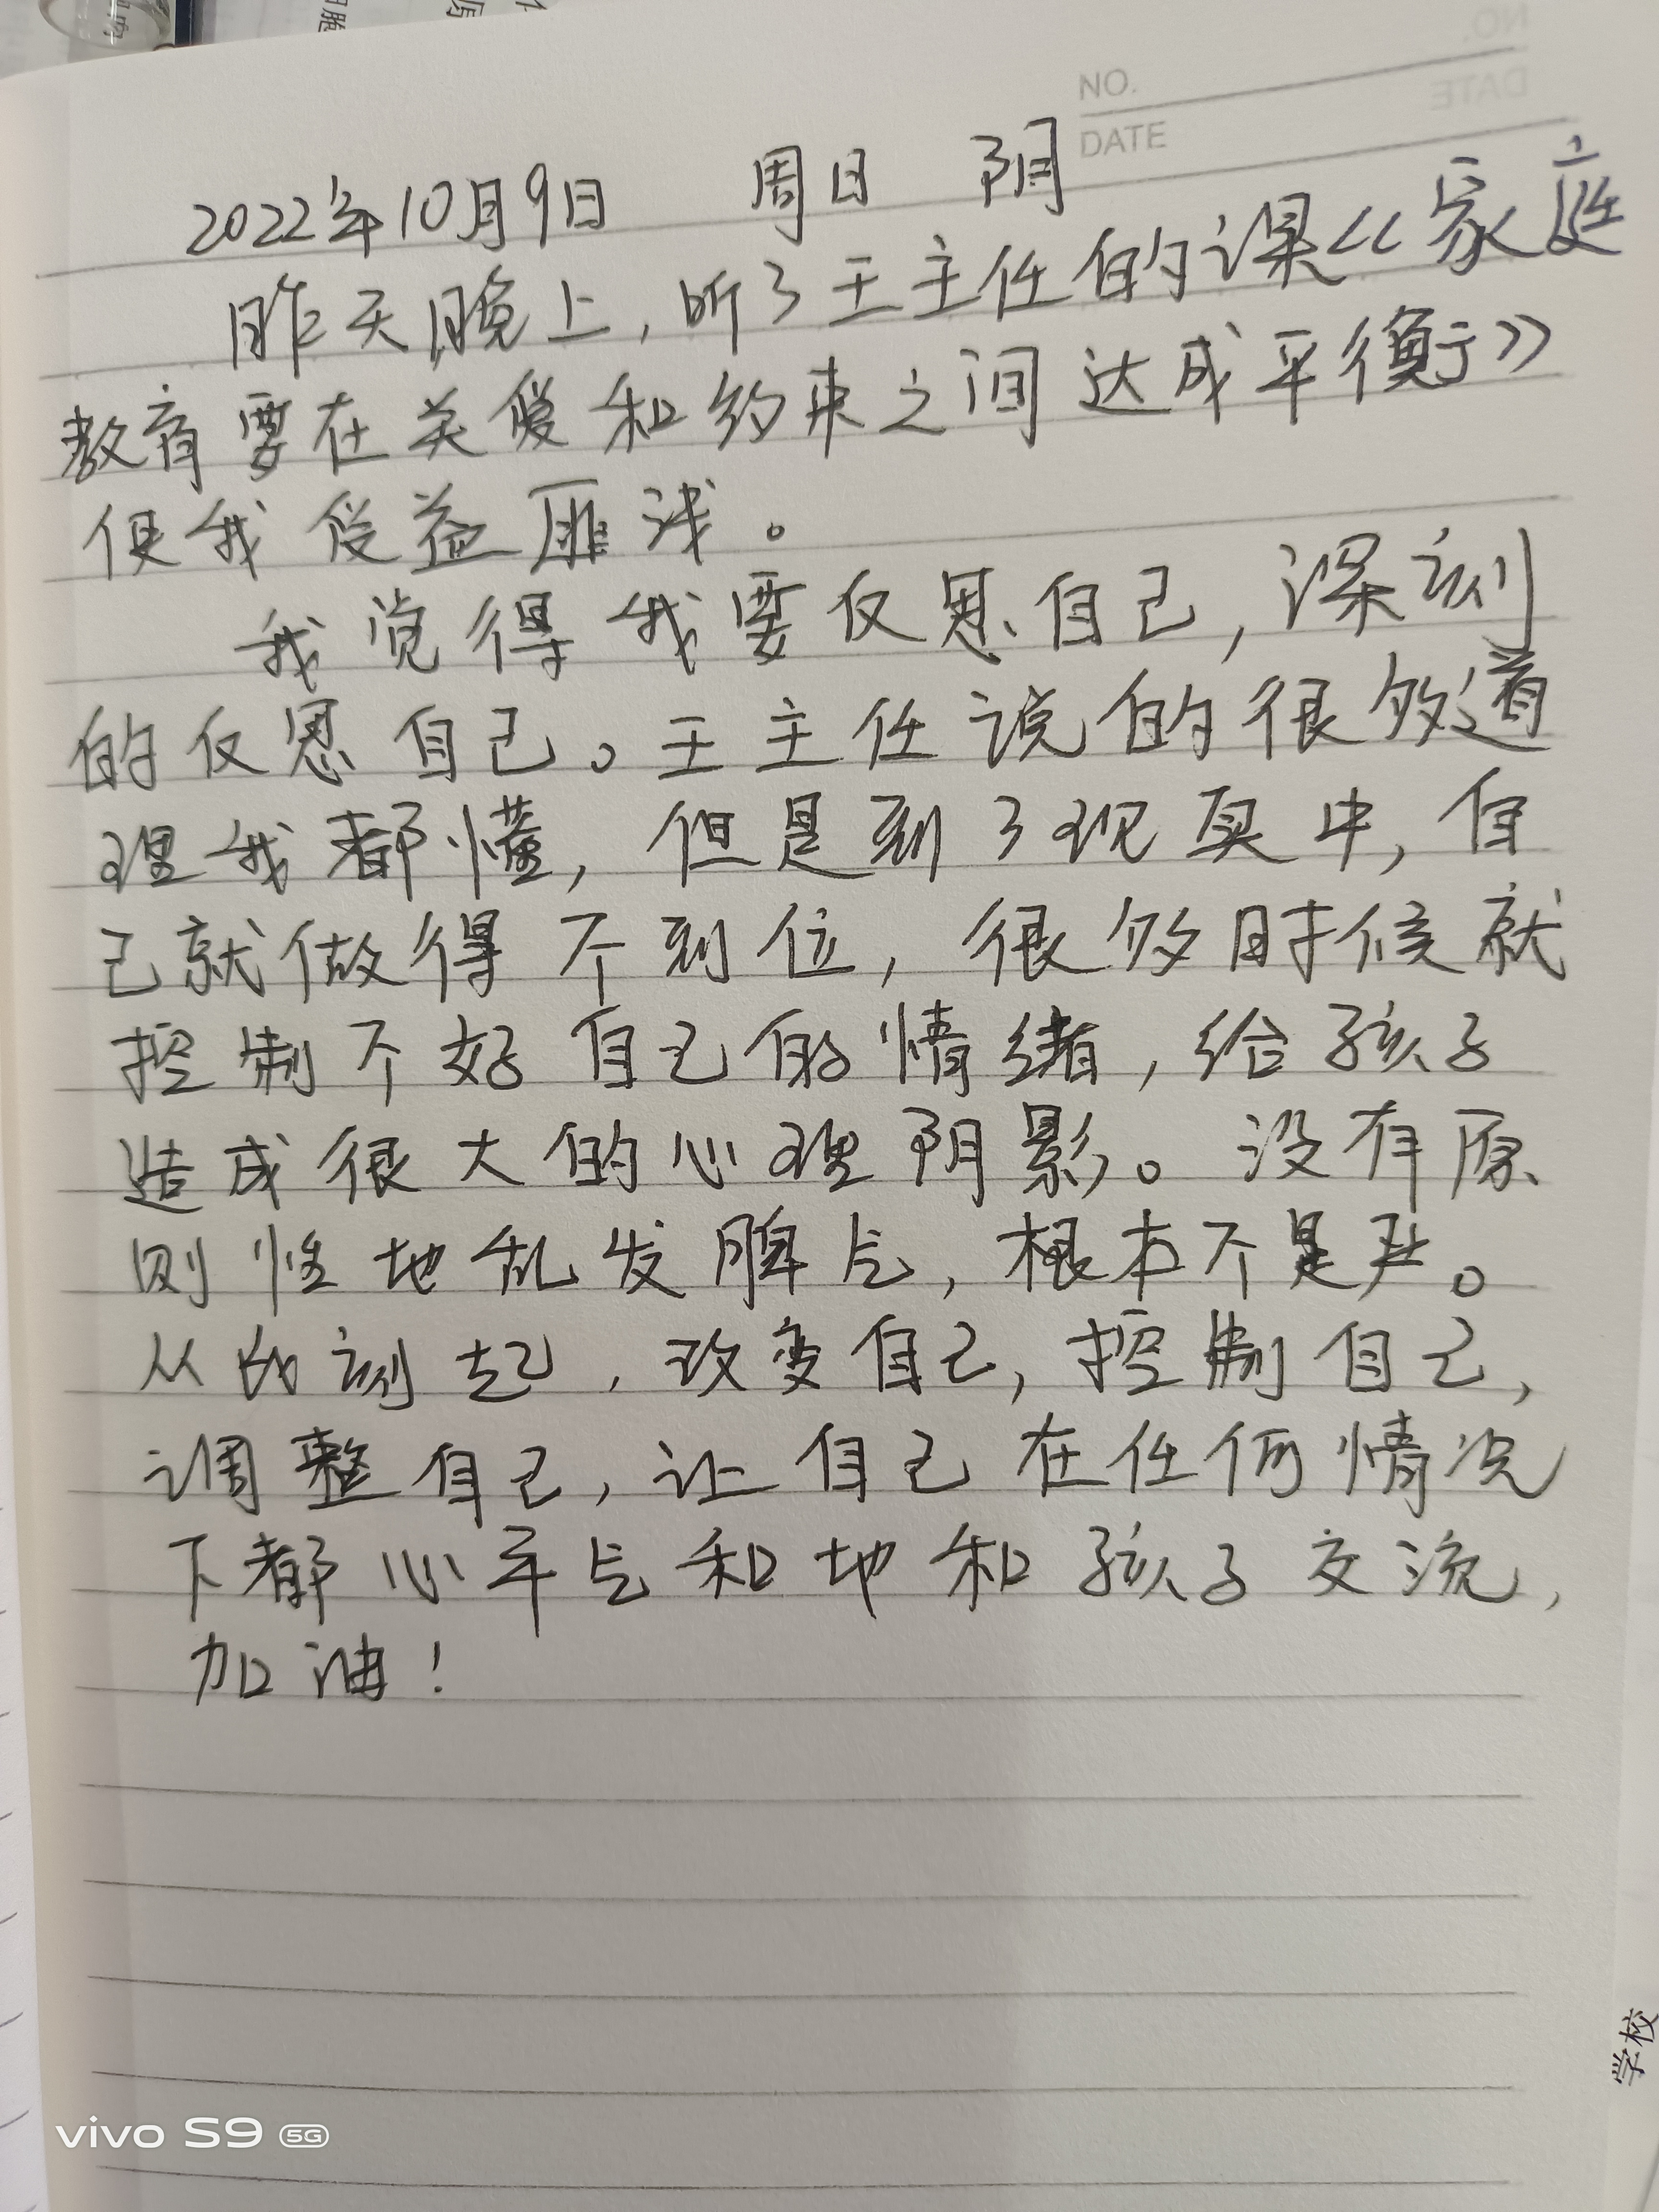 NO.
DATE
2022年10月9日 周日 阴
昨天晚上,听了王主任的课《家庭
教育要在关爱和约束之间达成平衡》
使我受益匪浅。
我觉得我要反思自己,深刻
的反思自己。王主任说的很多道
理我都懂,但是到了现实中,自
己就做得不到位,很多时候就
控制不好自己的情绪,给孩子
造成很大的心理阴影。没有原
则性地乱发脾气,根本不是严。
从此刻起,改变自己,控制自己,
调整自己,让自己在任何情况
下都心平气和地和孩子交流,
加油!
学校
vivo S9 5G